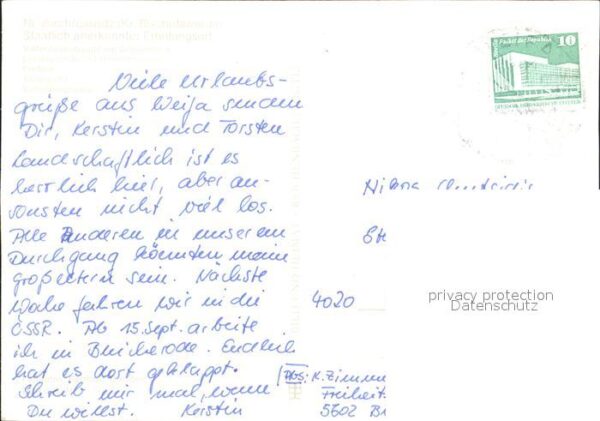 Staatlich anerkannter Erholungsort
Viele Urlaubs-
grüße aus Weija senden
Dir, Kerstin und Torsten
Landschaftlich ist es
herrlich hier, aber an-
sonsten nicht viel los.
Alle Anderen in unserem
Durchgang könnten meine
Großeltern sein. Nächste
Woche fahren wir in die
ČSSR. Ab 15. Sept. arbeite
ich in Bleicherode. Endlich
hat es dort geklappt.
Schreib mir mal, wenn
Du willst. Kerstin
10
Palast der Republik
4020
privacy protection
Datenschutz
Abs: K. Zimme
Freiheit
5602 Bl